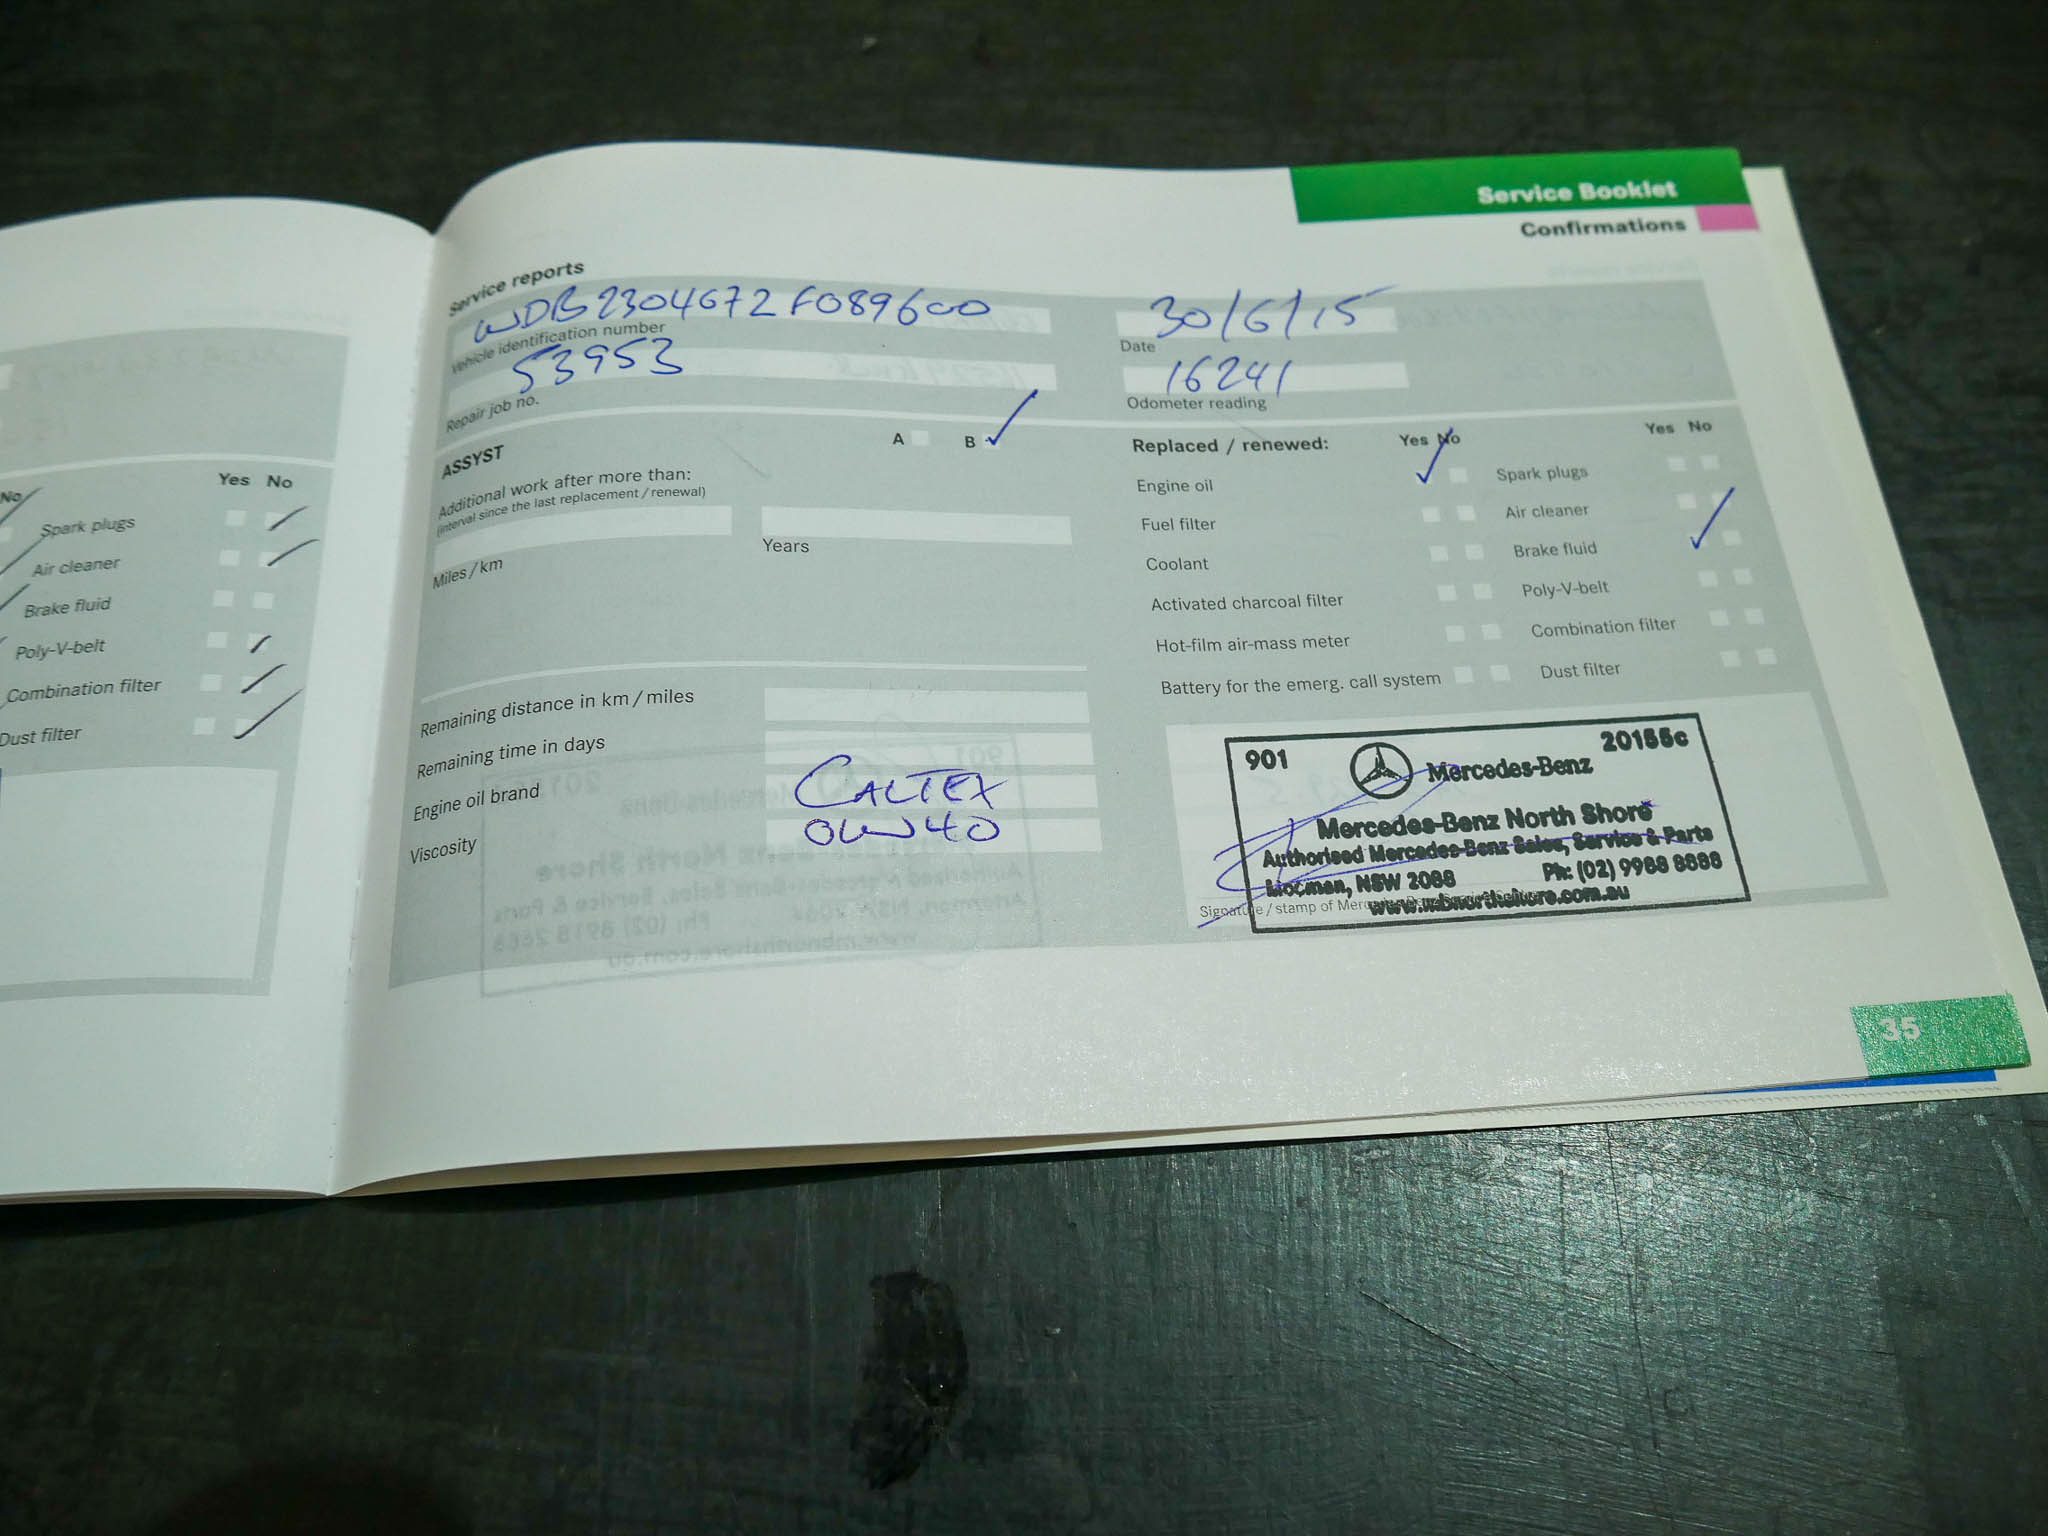 No
Yes No
Spark plugs
Air cleaner
Brake fluid
Poly-V-belt
Combination filter
Dust filter
Service Booklet
Confirmations
Service reports
WDB2304672F089600
Vehicle identification number
53953
Repair job no.
30/6/15
Date
16241
Odometer reading
ASSYST
A B
Additional work after more than:
(interval since the last replacement / renewal)
Miles / km
Years
Remaining distance in km / miles
Remaining time in days
Engine oil brand CALTEX
Viscosity 0W40
Replaced / renewed: Yes No Yes No
Engine oil Spark plugs
Fuel filter Air cleaner
Coolant Brake fluid
Activated charcoal filter Poly-V-belt
Hot-film air-mass meter Combination filter
Battery for the emerg. call system Dust filter
901 20155c
Mercedes-Benz
Mercedes-Benz North Shore
Authorised Mercedes-Benz Sales, Service & Parts
Mosman, NSW 2088 Ph: (02) 9988 8888
www.mbnorthshore.com.au
Signature / stamp of
35